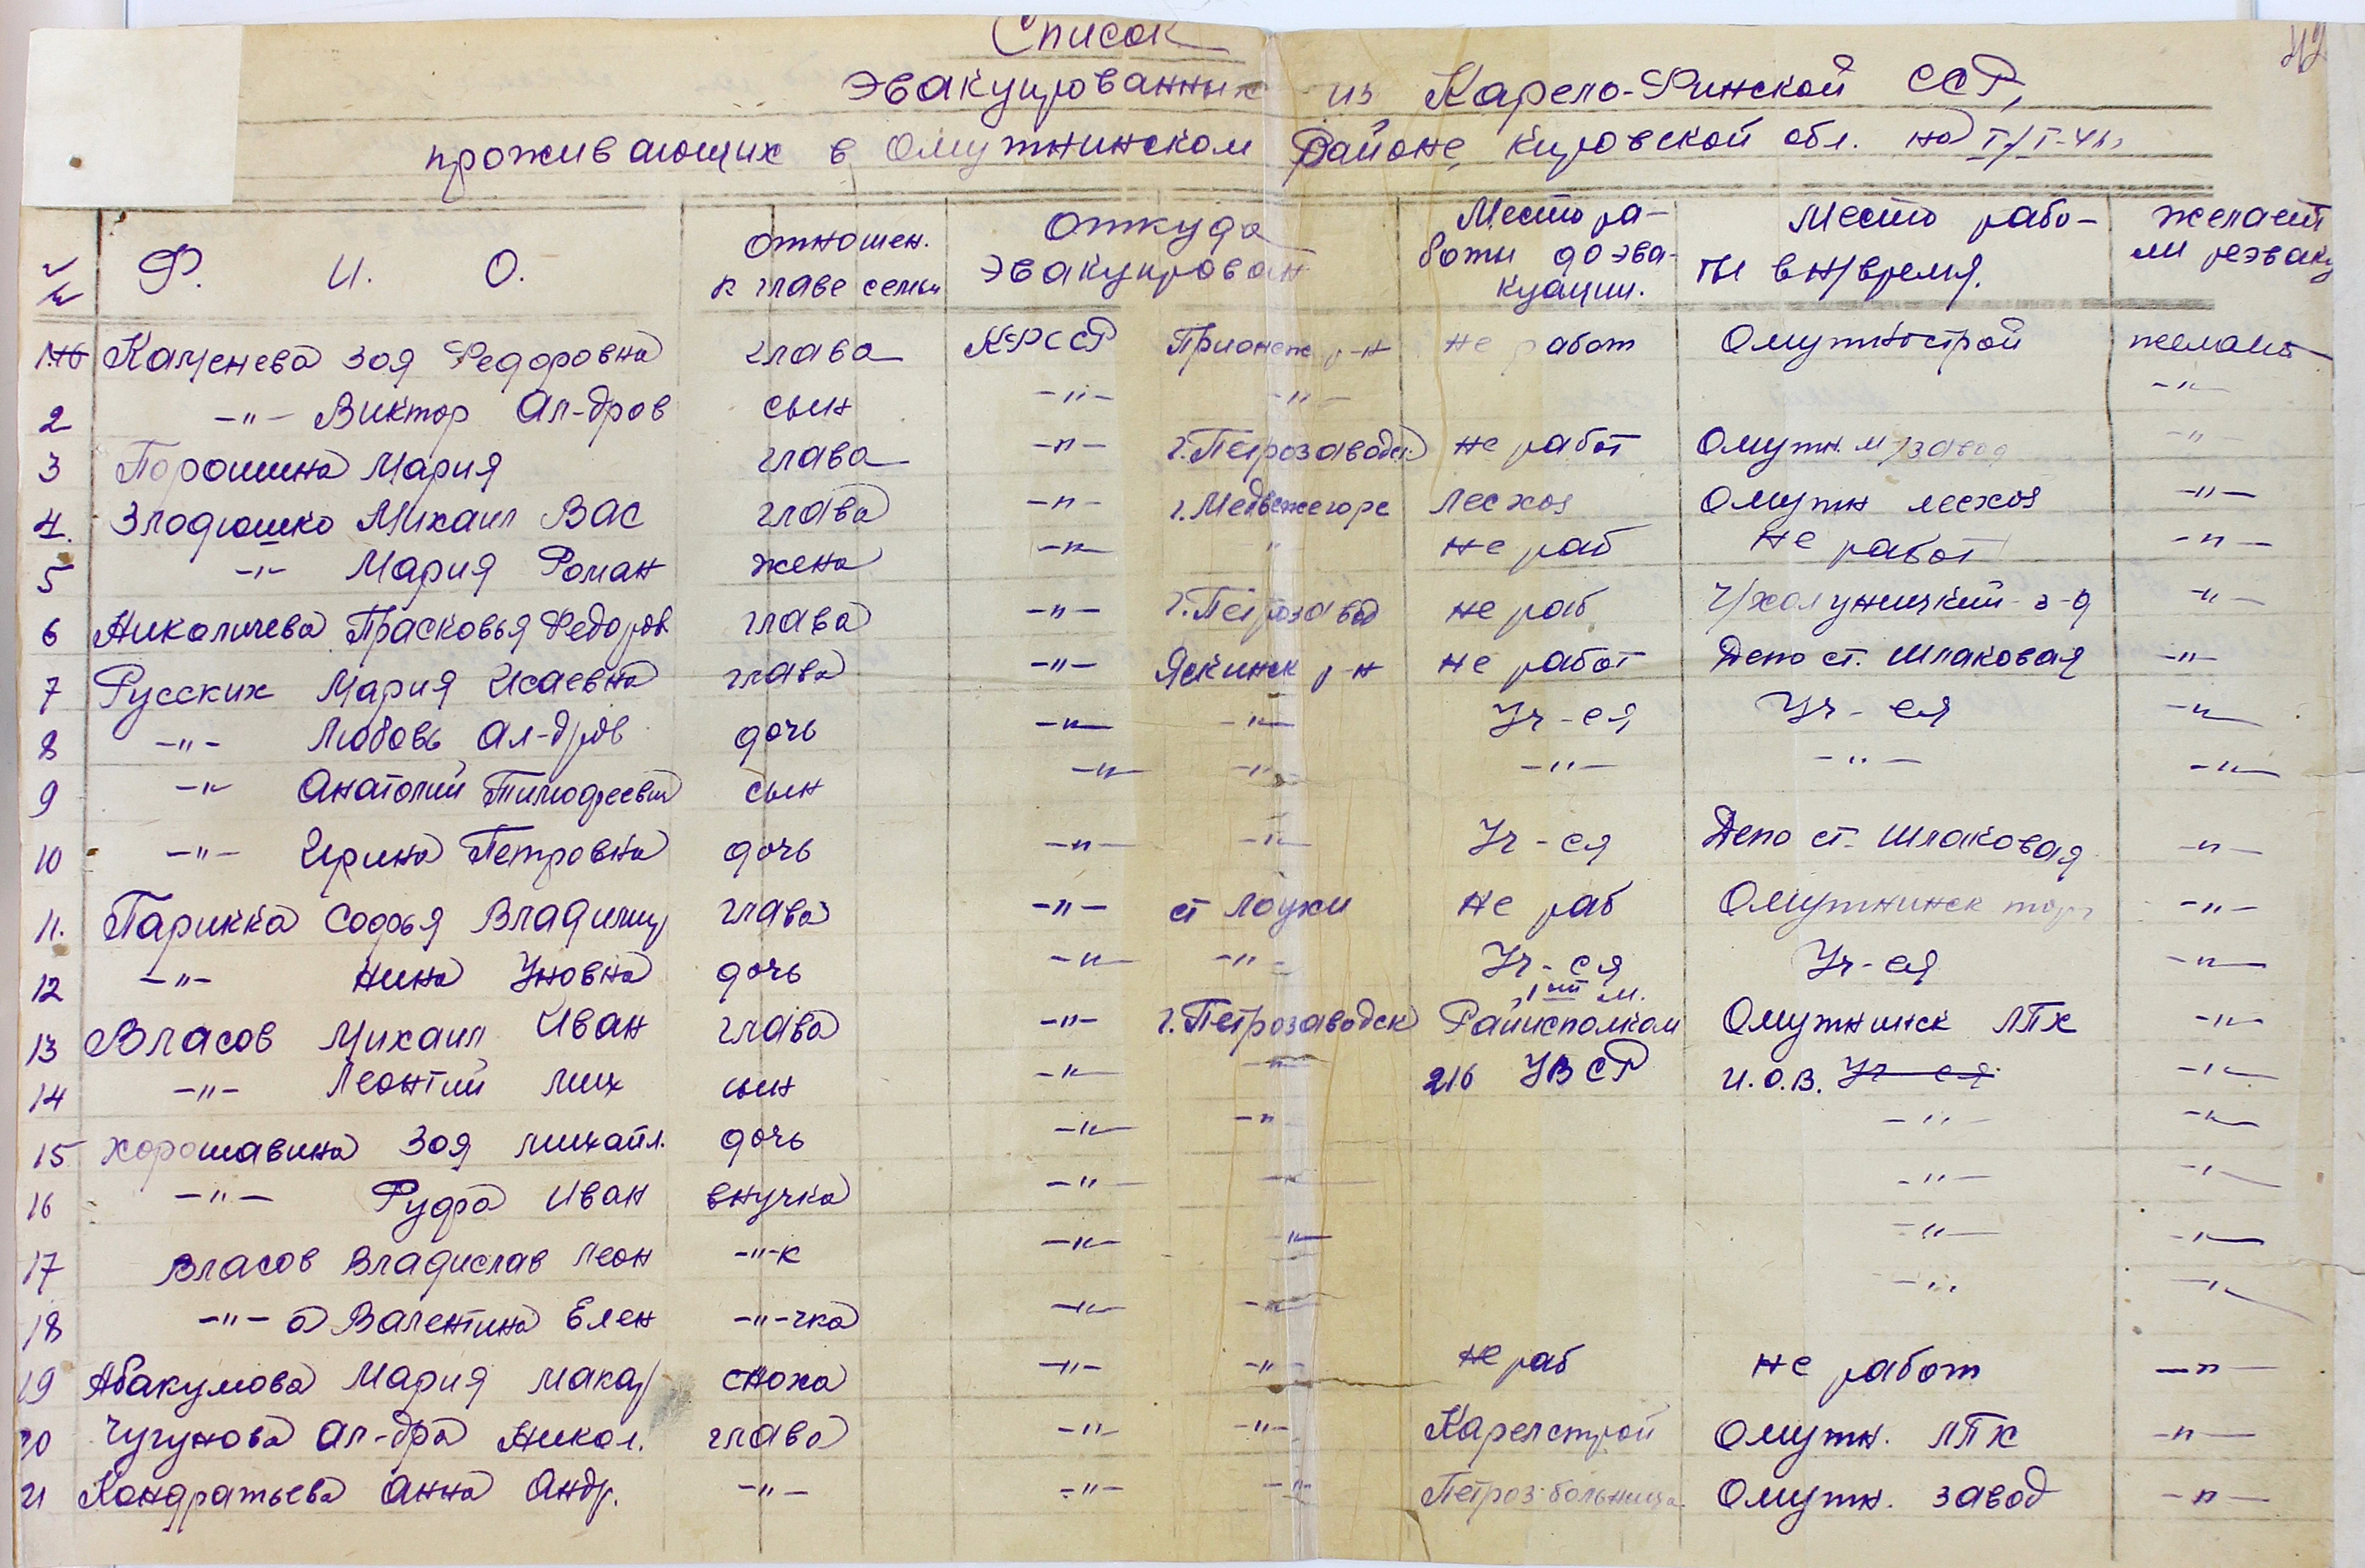 42
Список
эвакуированных из Карело-Финской ССР,
проживающих в Омутнинском районе, Кировской обл. на I/I-
Ф. И. О. отношен. к главе семьи откуда эвакуирован Место работы до эвакуации. Место работы в н/время. желает ли реэваку
1 Каменева Зоя Федоровна глава КФССР Прионеж р-н не работ Омутнстрой желает
2 -"- Виктор Ал-дров сын -"- -"- -"-
3 Порошина Мария глава -"- г. Петрозаводск не работ Омутн. м/завод -"-
4. Злодюшко Михаил Вас глава -"- г. Медвежегорс Лесхоз Омутн лесхоз -"-
5 -"- Мария Роман жена -"- " не раб не работ -"-
6 Николичева Прасковья Федоров глава -"- г. Петрозавод не раб Ч/холуницкий з-д -"-
7 Русских Мария Исаевна глава -"- Яскинск р-н не работ Депо ст. Шлаковая -"-
8 -"- Любовь Ал-дров дочь -"- -"- Уч-ся Уч-ся -"-
9 -"- Анатолий Тимофеевич сын -"- -"- -"- -"- -"-
10 -"- Ирина Петровна дочь -"- -"- Уч-ся Депо ст. Шлаковая -"-
11. Парикка Софья Владимир глава -"- ст Лоухи не раб Омутнинск торг -"-
12 -"- Нина Уновна дочь -"- -"- Уч-ся Уч-ся -"-
13 Власов Михаил Иван глава -"- г. Петрозаводск Райисполком Омутнинск ЛПХ -"-
14 -"- Леонтий Мих сын -"- -"- 216 УВСР И.О.В. Уч-ся -"-
15 Хорошавина Зоя Михайл. дочь -"- -"- -"- -"-
16 -"- Руфа Иван внучка -"- -"- -"- -"-
17 Власов Владислав Леон -"-к -"- -"- -"- -"-
18 -"-а Валентина Елен -"-чка -"- -"- -"- -"-
19 Абакумова Мария Макар сноха -"- -"- не раб не работ -"-
20 Чугунова Ал-дра Никол. глава -"- -"- Карелстрой Омутн. ЛПХ -"-
21 Кондратьева Анна Андр. -"- -"- -"- Петроз. больница Омутн. завод -"-